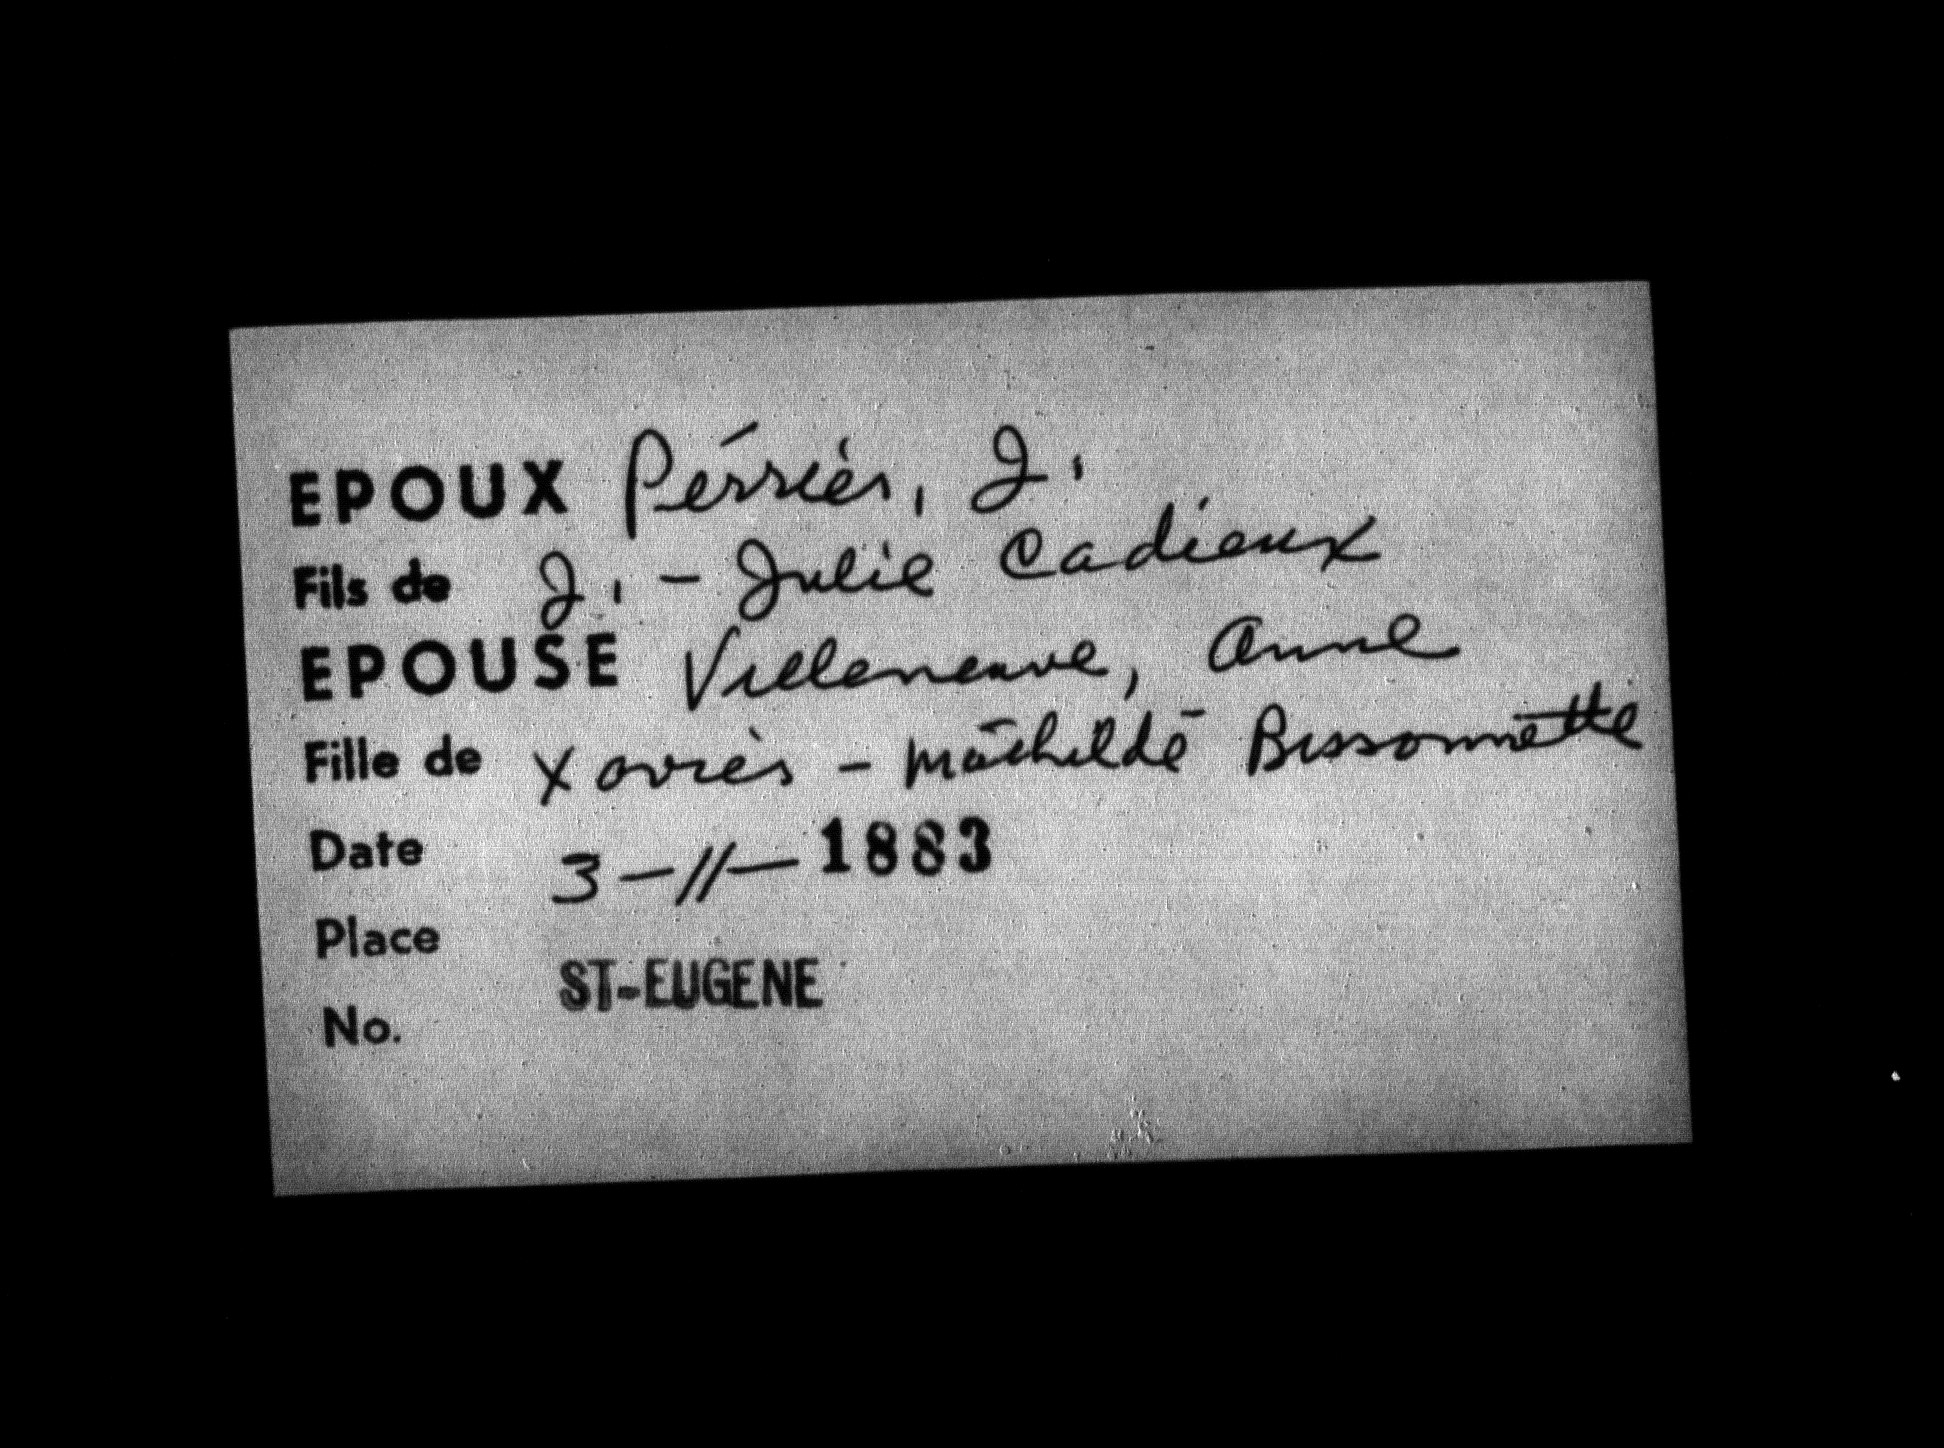 EPOUX Pérrier, J.
Fils de J. - Julie Cadieux
EPOUSE Villeneuve, Anne
Fille de Xavier - Mathilde Bissonnette
Date 3-11-1883
Place ST-EUGENE
No.